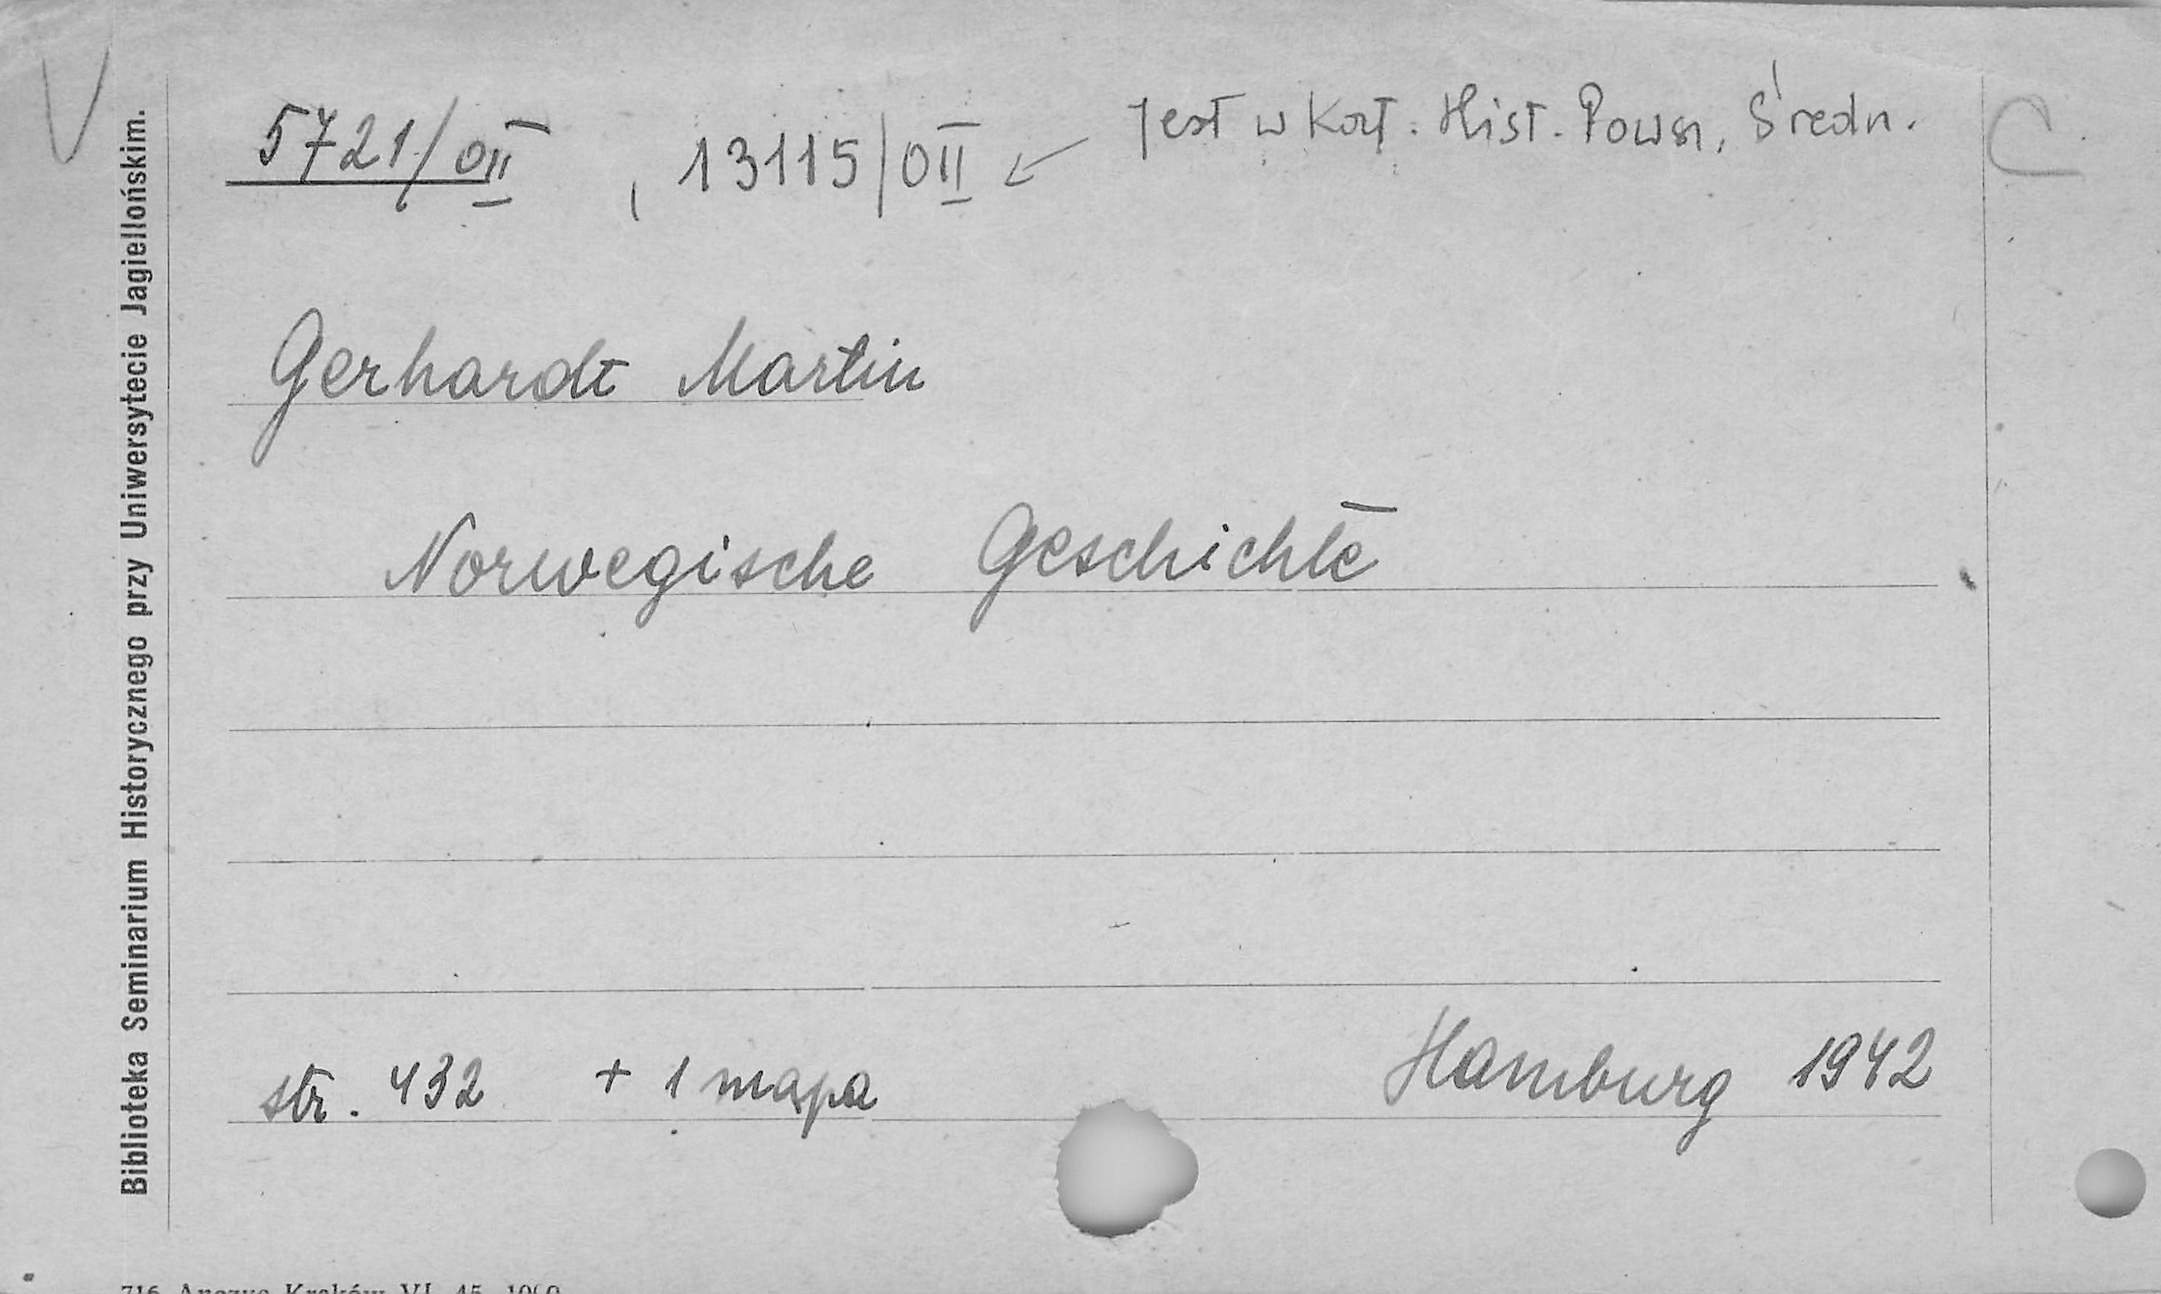 5721/0II , 13115/0II ← Jest w Kat. Hist. Powsz. Średn.
Gerhardt Martin
Norwegische Geschichte
str. 432 + 1 mapa Hamburg 1942
Biblioteka Seminarium Historycznego przy Uniwersytecie Jagiellońskim.
716 Anczyc Kraków VI. 45.